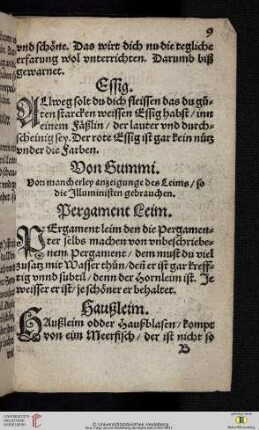 9
vnd schöne. Das wirt dich nu die tegliche
erfarung wol vnterrichten. Darumb biß
gewarnet.
Essig.
ALlweg solt du dich fleissen das du gü-
ten starcken weissen Essig habst / inn
einem Fäßlin / der lauter vnd durch-
scheinig sey. Der rote Essig ist gar kein nütz
vnder die Farben.
Von Gummi.
Von mancherley anzeigunge des Leims / so
die Illuministen gebrauchen.
Pergament Leim.
PErgament leim den die Pergamen-
ter selbs machen von vnbeschriebe-
nem Pergament / dem must du viel
zusatz mit Wasser thün / deñ er ist gar kreff-
tig vnnd subtil / denn der Hornleim ist. Je
weisser er ist / je schöner er behaltet.
Haußleim.
HAußleim odder Haußblasen / kompt
von eim Meerfisch / der ist nicht so
B
© Universitätsbibliothek Heidelberg